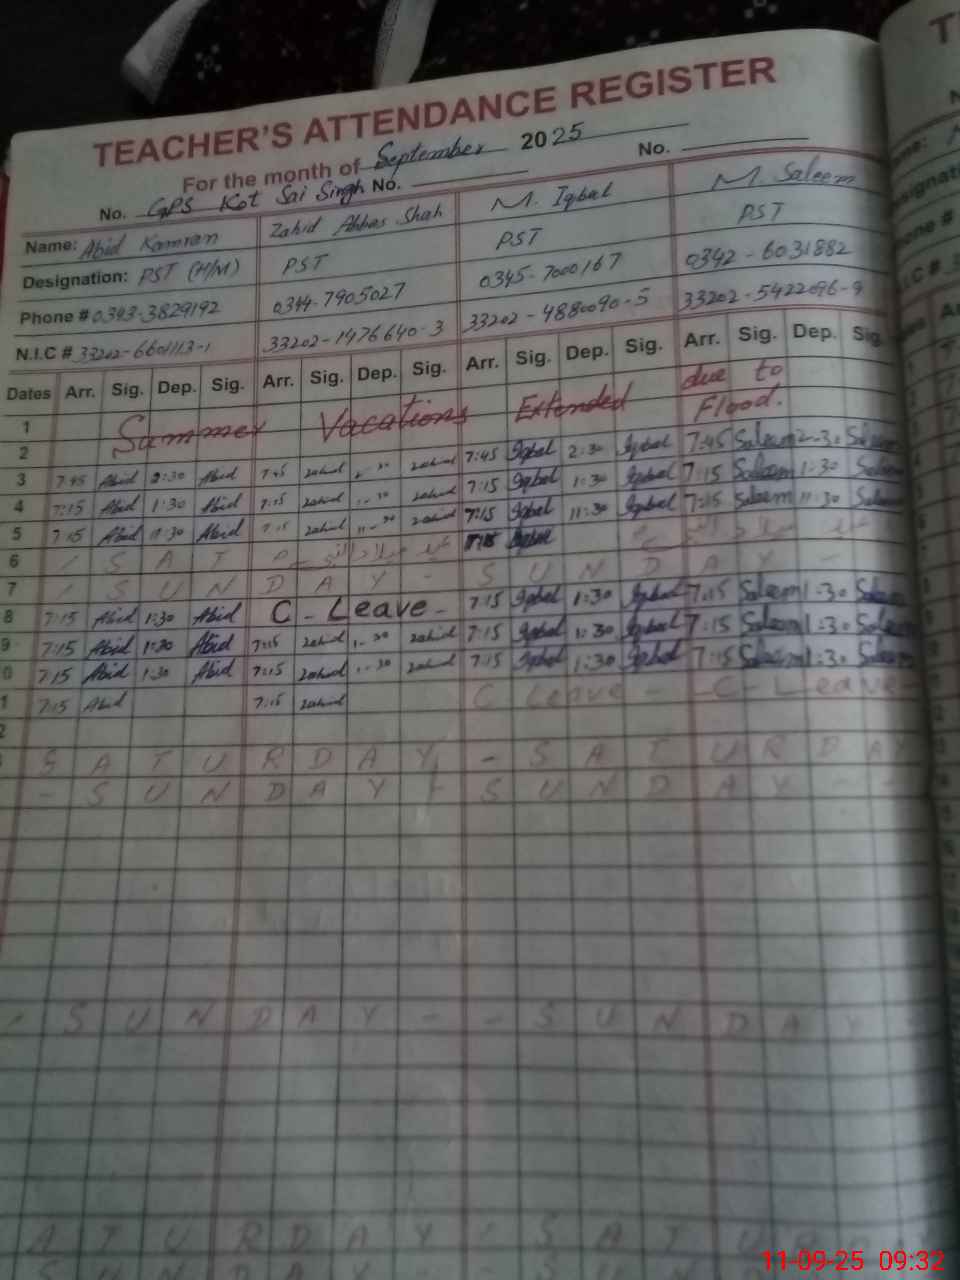 TEACHER'S ATTENDANCE REGISTER
For the month of September 2025
No. GPS Kot Sai Singh No. No.
Name: Abid Kamran Zahid Abbas Shah M. Iqbal M. Saleem
Designation: PST (H/M) PST PST PST
Phone # 0343-3829192 0344-7905027 0345-7000167 0342-6031882
N.I.C # 33202-6601113-1 33202-1976640-3 33202-4880090-5 33202-5422096-9
Dates Arr. Sig. Dep. Sig. Arr. Sig. Dep. Sig. Arr. Sig. Dep. Sig. Arr. Sig. Dep. Sig.
1 Summer Vacations Extended due to
2 Flood.
3 7:45 Abid 2:30 Abid 7:45 zahid zahid 7:45 Iqbal 2:30 Iqbal 7:45 Saleem 2:30 Saleem
4 7:15 Abid 1:30 Abid 7:15 zahid 1:30 zahid 7:15 Iqbal 1:30 Iqbal 7:15 Saleem 1:30 Saleem
5 7:15 Abid 11:30 Abid 7:15 zahid 11:30 zahid 7:15 Iqbal 11:30 Iqbal 7:15 Saleem 11:30 Saleem
6 S A T 7:15 Iqbal
7 S U N D A Y - S U N D A Y -
8 7:15 Abid 1:30 Abid C - Leave - 7:15 Iqbal 1:30 Iqbal 7:15 Saleem 1:30 Saleem
9 7:15 Abid 1:30 Abid 7:15 zahid 1:30 zahid 7:15 Iqbal 1:30 Iqbal 7:15 Saleem 1:30 Saleem
0 7:15 Abid 1:30 Abid 7:15 zahid 1:30 zahid 7:15 Iqbal 1:30 Iqbal 7:15 Saleem 1:30 Saleem
1 7:15 Abid 7:15 zahid C Leave - - C - Leave -
2
S A T U R D A Y - S A T U R D A Y
- S U N D A Y - S U N D A Y - -
S U N D A Y - - S U N D A Y
A T U R D A Y S A T U R D A
11-09-25 09:32